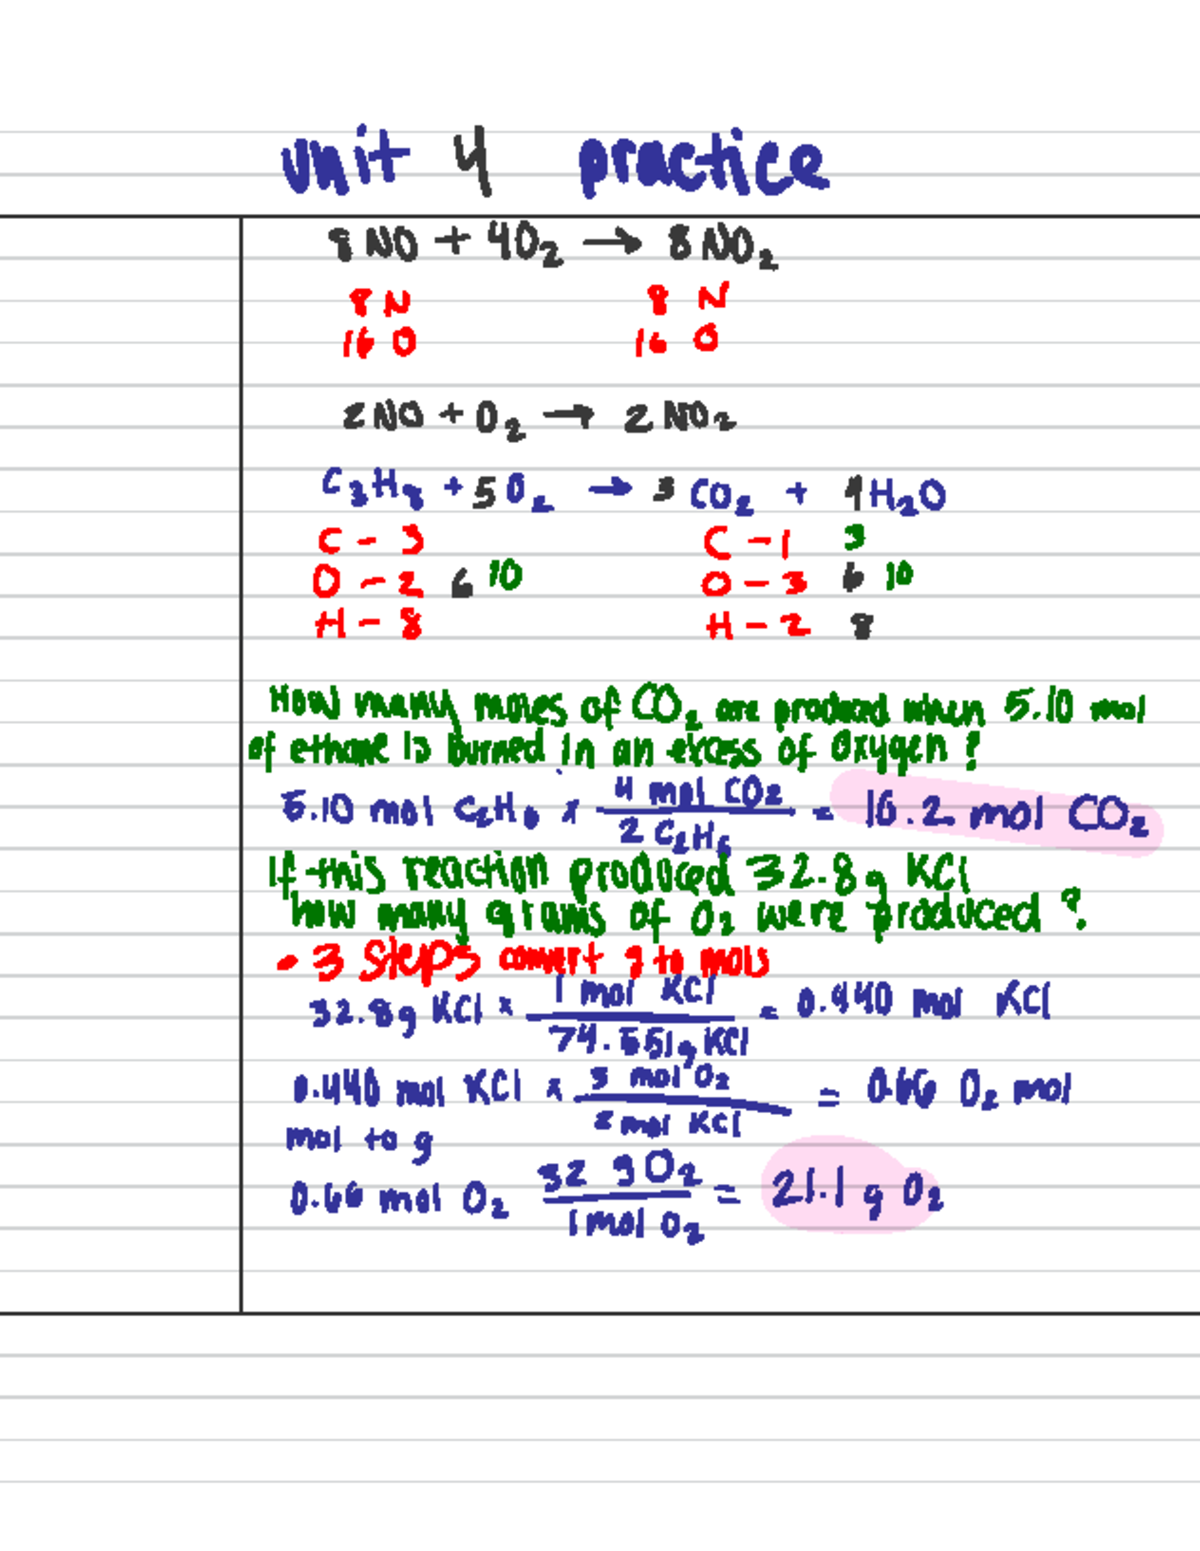 unit 4 practice
8 NO + 4O₂ → 8 NO₂
8 N 8 N
16 O 16 O
2 NO + O₂ → 2 NO₂
C₃H₈ + 5 O₂ → 3 CO₂ + 4 H₂O
C - 3 C - 1 3
O - 2 6 10 O - 3 6 10
H - 8 H - 2 8
How many moles of CO₂ are produced when 5.10 mol
of ethane is burned in an excess of oxygen?
5.10 mol C₂H₆ x 4 mol CO₂ / 2 C₂H₆ = 10.2 mol CO₂
If this reaction produced 32.8g KCl
how many grams of O₂ were produced?
- 3 steps convert g to mols
32.8g KCl x 1 mol KCl / 74.551g KCl = 0.440 mol KCl
0.440 mol KCl x 3 mol O₂ / 2 mol KCl = 0.66 O₂ mol
mol to g
0.66 mol O₂ 32 g O₂ / 1 mol O₂ = 21.1 g O₂